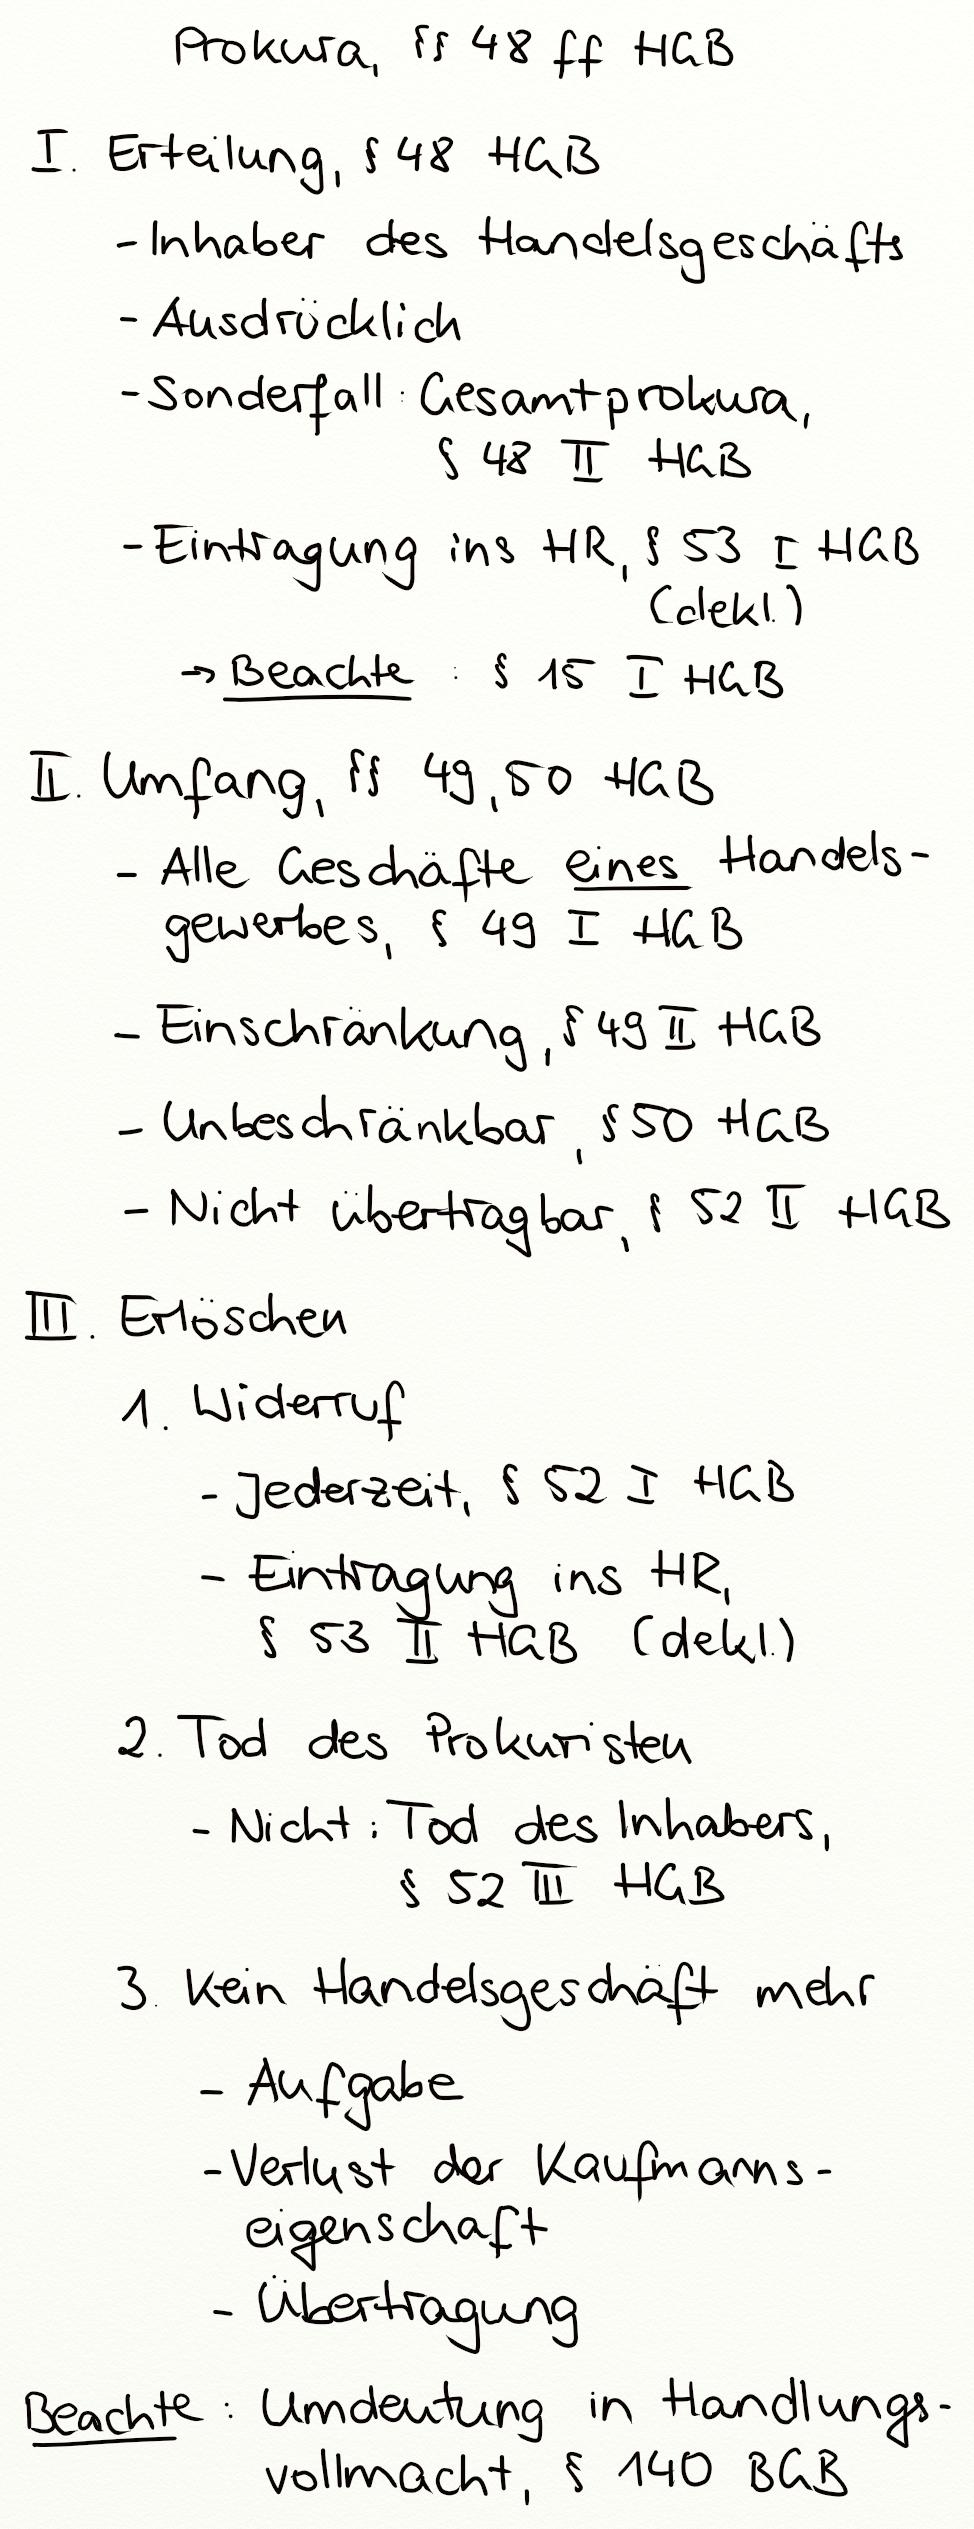 Prokura, §§ 48 ff HGB
I. Erteilung, § 48 HGB
- Inhaber des Handelsgeschäfts
- Ausdrücklich
- Sonderfall: Gesamtprokura,
§ 48 II HGB
- Eintragung ins HR, § 53 I HGB
(dekl.)
→ Beachte: § 15 I HGB
II. Umfang, §§ 49, 50 HGB
- Alle Geschäfte eines Handels-
gewerbes, § 49 I HGB
- Einschränkung, § 49 II HGB
- Unbeschränkbar, § 50 HGB
- Nicht übertragbar, § 52 II HGB
III. Erlöschen
1. Widerruf
- Jederzeit, § 52 I HGB
- Eintragung ins HR,
§ 53 II HGB (dekl.)
2. Tod des Prokuristen
- Nicht: Tod des Inhabers,
§ 52 III HGB
3. Kein Handelsgeschäft mehr
- Aufgabe
- Verlust der Kaufmanns-
eigenschaft
- Übertragung
Beachte: Umdeutung in Handlungs-
vollmacht, § 140 BGB